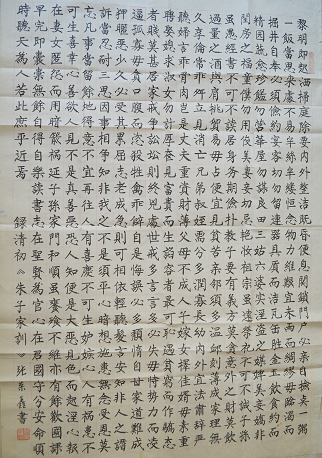 黎明即起洒掃庭除要内外整洁既昏便息關鎖門户必亲自檢点一粥
一飯當思來處不易半絲半縷恒念物力維艱宜未雨而綢繆毋臨渴而
掘井自奉必須儉約宴客切勿留連器具質而洁瓦缶胜金玉飲食約而
精園蔬愈珍饈勿營華屋勿謀良田三姑六婆实淫盗之媒婢美妾嬌非
閨房之福童僕勿用俊美妻妾切忌艳妝祖宗虽遠祭祀不可不誠子孫
虽愚經書不可不談居身务期儉朴教子要有義方莫貪意外之財莫飲
過量之酒與肩挑貿易毋占便宜見貧苦親鄰須多温卹刻薄成家理無
久享倫常乖舛立見消亡兄弟叔姪需分多潤寡長幼内外宜法肅辞严
聽婦言乖骨肉豈是丈夫重資財薄父母不成人子嫁女擇佳婿毋索重
聘娶媳求淑女勿計厚奩見富貴而生諂容者最可恥遇貧窮而作驕态
者賤莫甚居家戒争訟訟則終凶處世戒多言言多必失毋恃勢力而凌
逼孤寡毋貪口腹而恣殺牲禽乖僻自是悔誤必多頹惰自甘家道難成
狎暱恶少久必受其累屈志老成急則可相依輕聽發言安知非人之譖
訴當忍耐三思因事相争知非我之不是須平心暗想施惠無念受恩莫
忘凡事當留餘地得意不宜再往人有喜慶不可生妒嫉心人有禍患不
可生喜幸心善欲人見不是真善恶恐人知便是大恶見色而起淫心報
在妻女匿怨而用暗箭禍延子孫家門和順虽饔飧不繼亦有餘歡國課
早完即囊橐無餘自得至樂讀書志在聖賢為官心在君國守分安命順
時聽天為人若此庶乎近焉 録清初《朱子家訓》 書